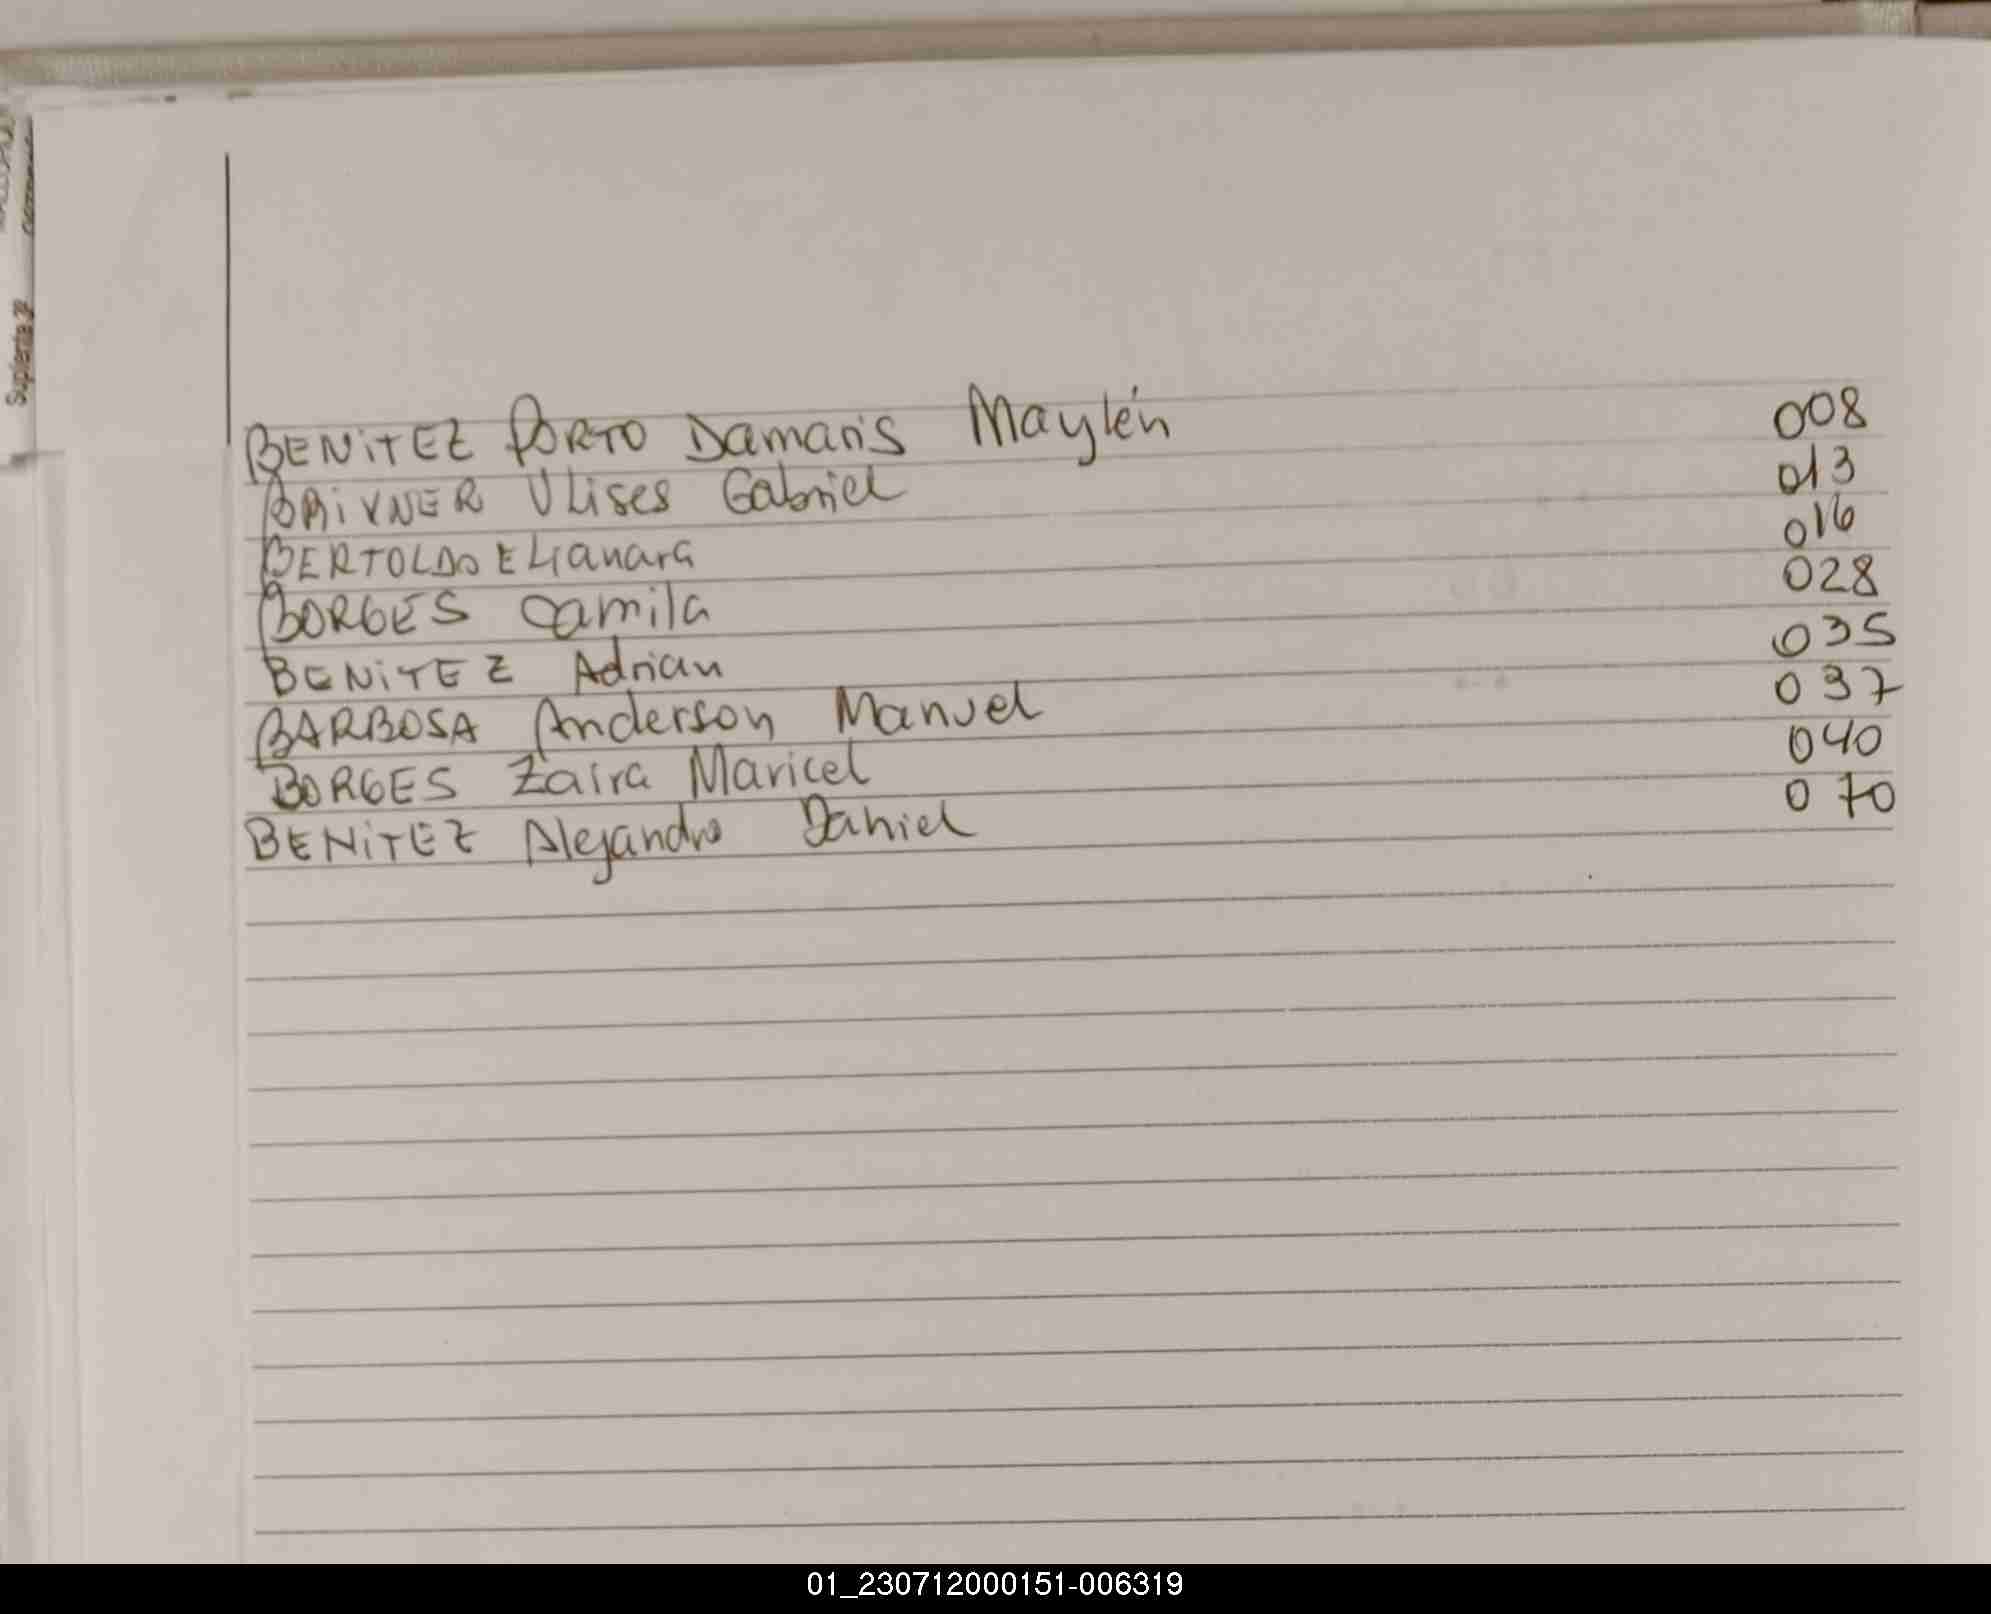 Suplente 2º
BENITEZ PORTO Damaris Maylén 008
BRIXNER Ulises Gabriel 013
BERTOLDO Elianara 016
BORGES Camila 028
BENITEZ Adrian 035
BARBOSA Anderson Manuel 037
BORGES Zaira Maricel 040
BENITEZ Alejandro Daniel 070
01_230712000151-006319